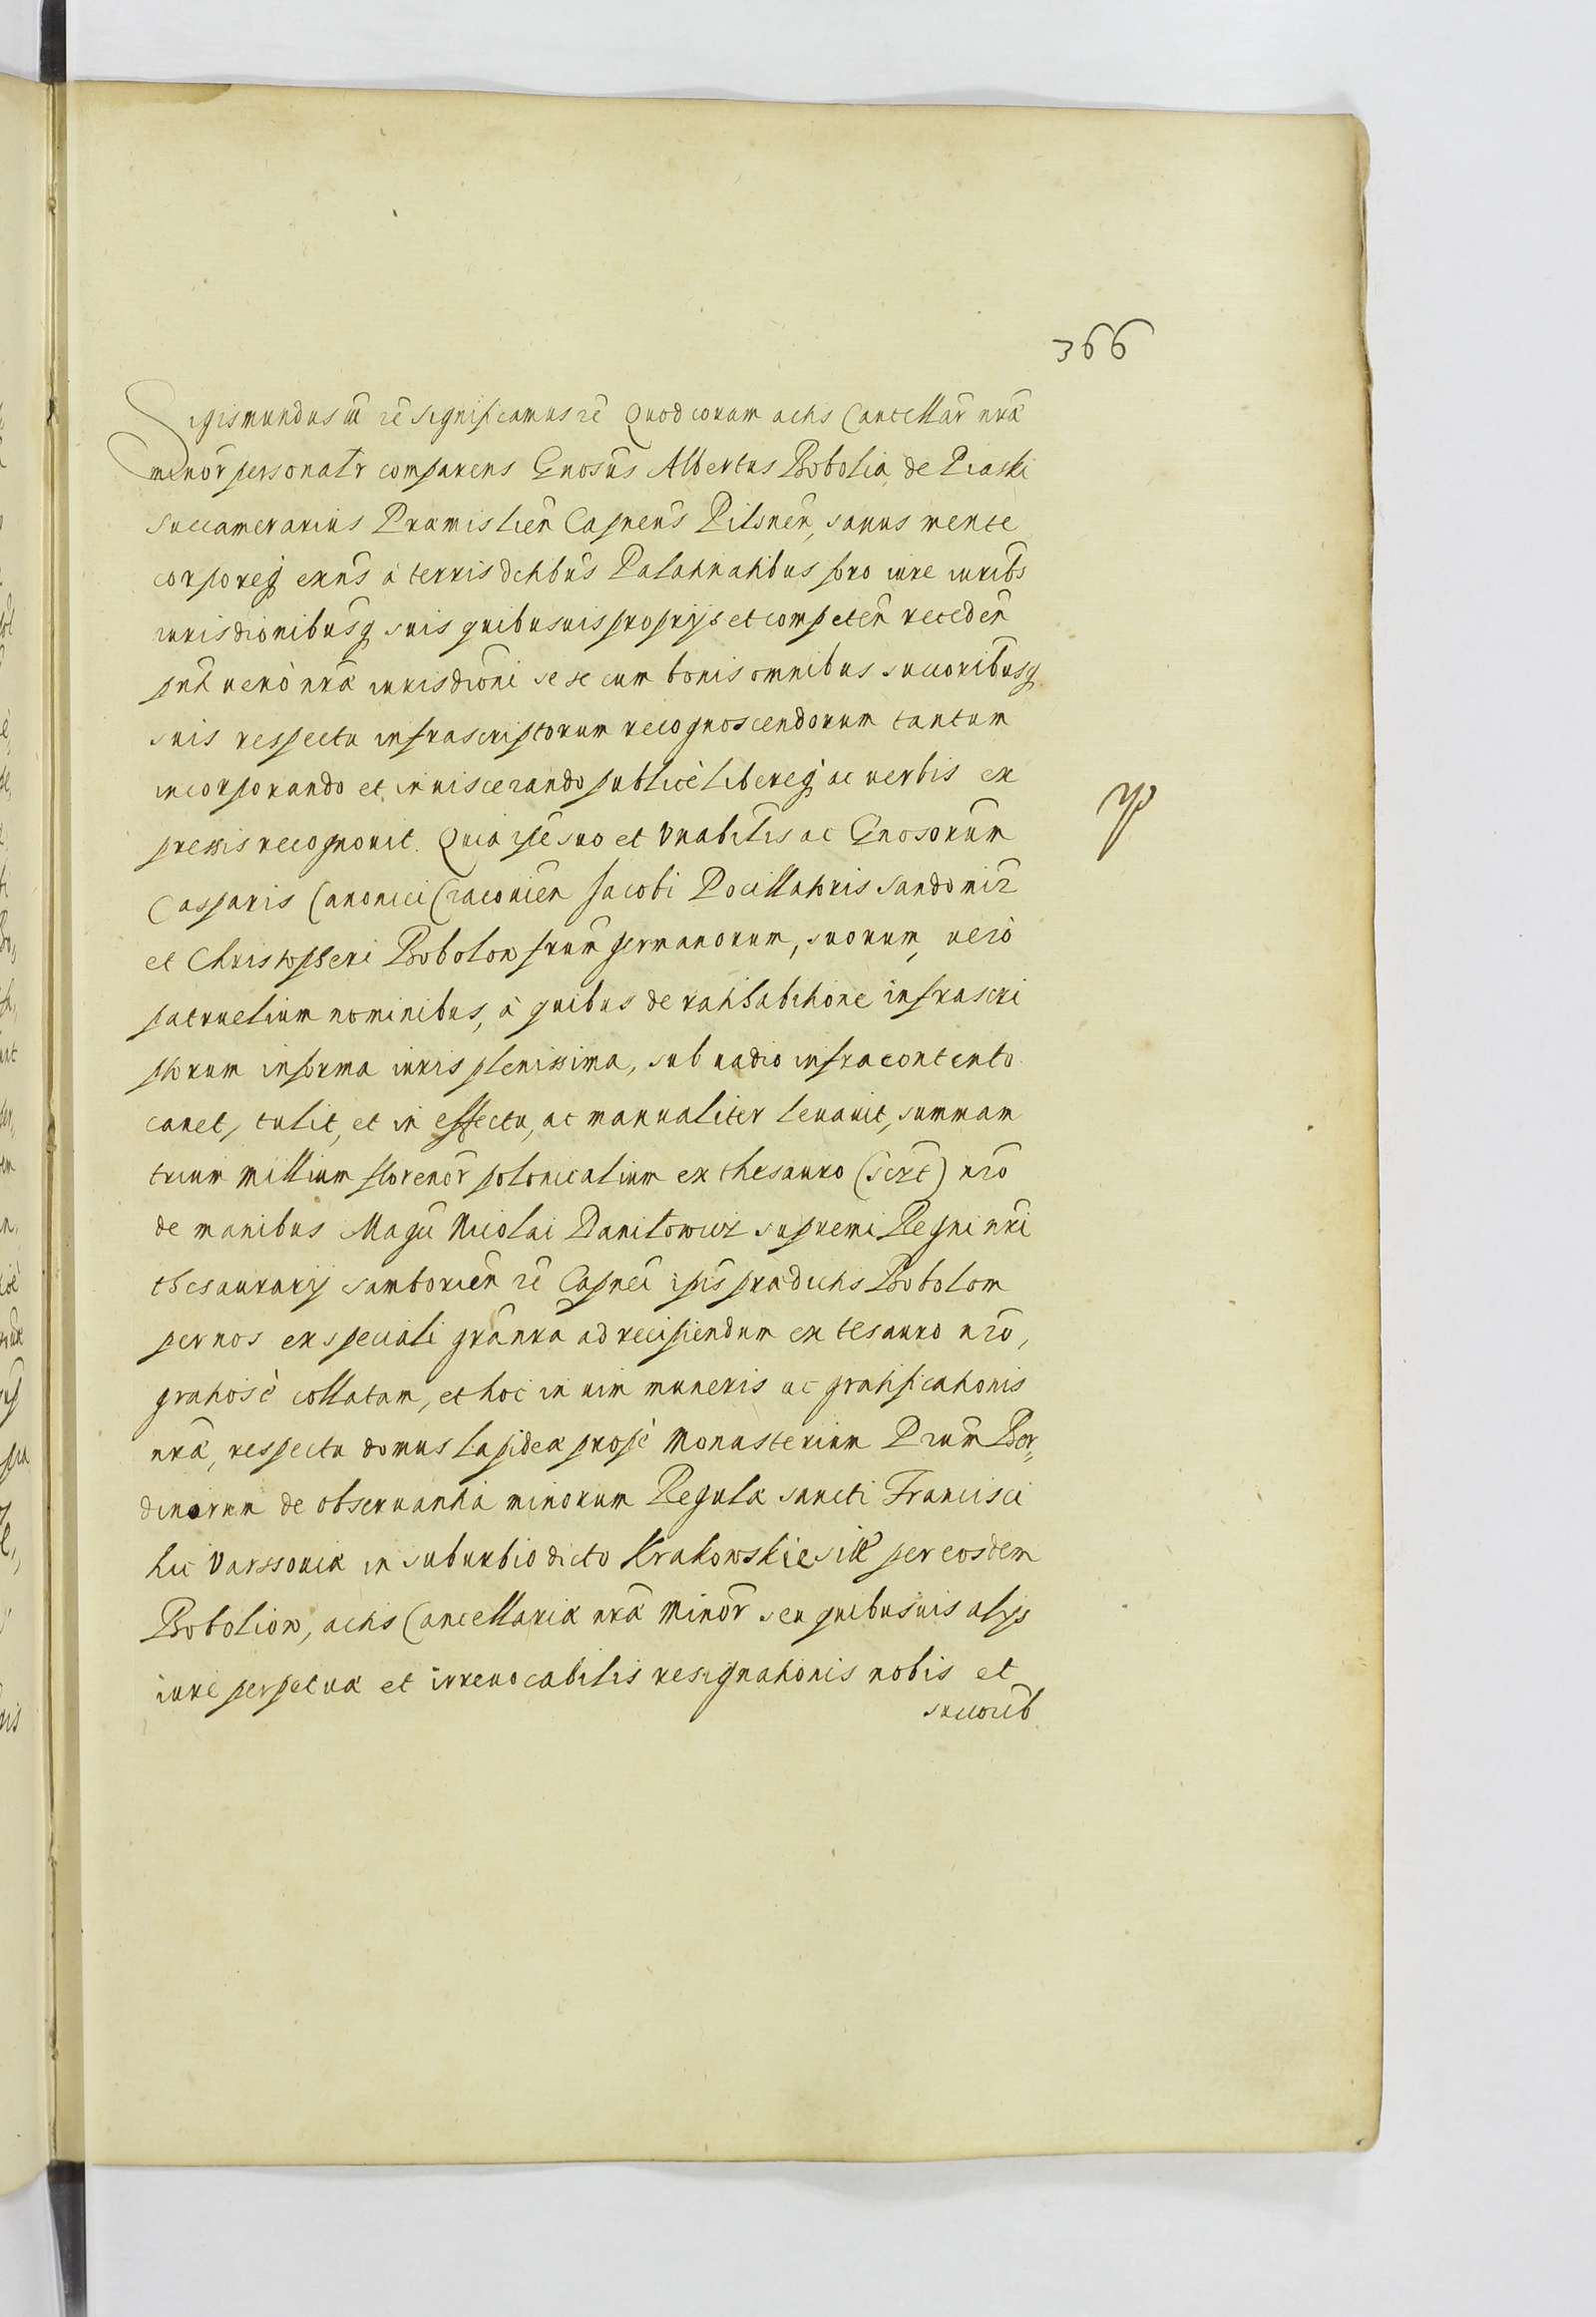 366
Sigismundus III rē significamus rē Quod coram actis Cancellar nræ
minor personalr comparens Gnosus Albertus Bobolia de Piaski
succamerarius Præmislien Capneus Pilsnen, sanus mente
corporeq exns à terris dctibus Palatinatibus foro iure iuribs
iurisdionibusq suis quibusuis proprijs et competen receden
pnti uerò nræ iurisdioni se se cum bonis omnibus succoribusq
suis respectu infrascriptorum recognoscendorum tantum
incorporando et inuiscerando publicè libereq ac uerbis ex
pressis recognouit. Quia ipse suo et Vnabilis ac Gnosorum
Casparis Canonici Cracouien Jacobi Pocillatoris Sandomir
et Christopheri Bobolow frum germanorum, suorum, uerò
patruelium nominibus, à quibus de ratihabitione infrascri
ptorum in forma iuris plenissima, sub uadio infracontento
cauet, tulit, et in effectu, ac manualiter leuauit, summam
trium millium florenor polonicalium ex thesauro (scrt) nro
de manibus Magci Nicolai Daniłowicz supremi Regni nri
thesaurarij samborien rē Capnei ipis prædictis Bobolom
per nos ex speciali gra nra ad recipiendum ex tesauro nro,
gratiosè collatam, et hoc in uim muneris ac gratificationis
nræ, respectu domus lapideæ propè Monasterium Prum Ber,
dinorum de obseruantia minorum Regulæ sancti Francisci
hic Varssouiæ in suburbio dicto Krakowskie sitæ per eosdem
Boboliow, actis Cancellariæ nræ Minor seu quibusuis alijs
iure perpetuæ et irreuocabilis resignationis nobis et
succorib